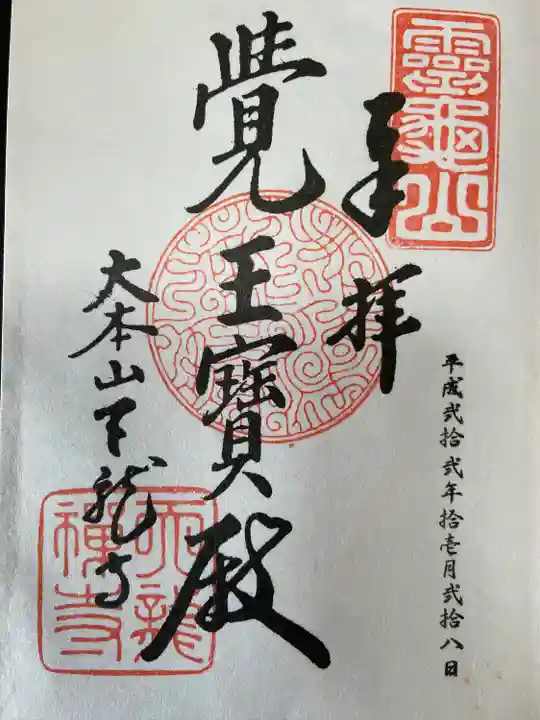 靈龜山
奉拝
平成弐拾弐年拾壱月弐拾八日
覺王寶殿
大本山天龍寺
天龍
禅寺